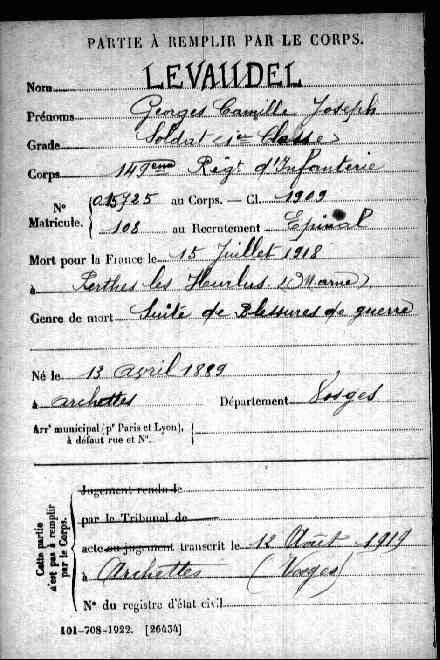 PARTIE À REMPLIR PAR LE CORPS.
Nom LEVAUDEL
Prénoms Georges Camille Joseph
Grade Soldat 1re Classe
Corps 149eme Régt d'Infanterie
N° Matricule. { au Corps. — Cl. 1909
108 au Recrutement Epinal
Mort pour la France le 15 Juillet 1918
à Perthes les Hurlus (Marne)
Genre de mort Suite de Blessures de guerre
Né le 13 avril 1889
à archettes Département Vosges
Arrt municipal (pr Paris et Lyon),
à défaut rue et N°.
Cette partie n'est pas à remplir par le Corps.
Jugement rendu le
par le Tribunal de
acte ou jugement transcrit le 12 Août 1919
à Archettes (Vosges)
N° du registre d'état civil
101-708-1922. [26434]